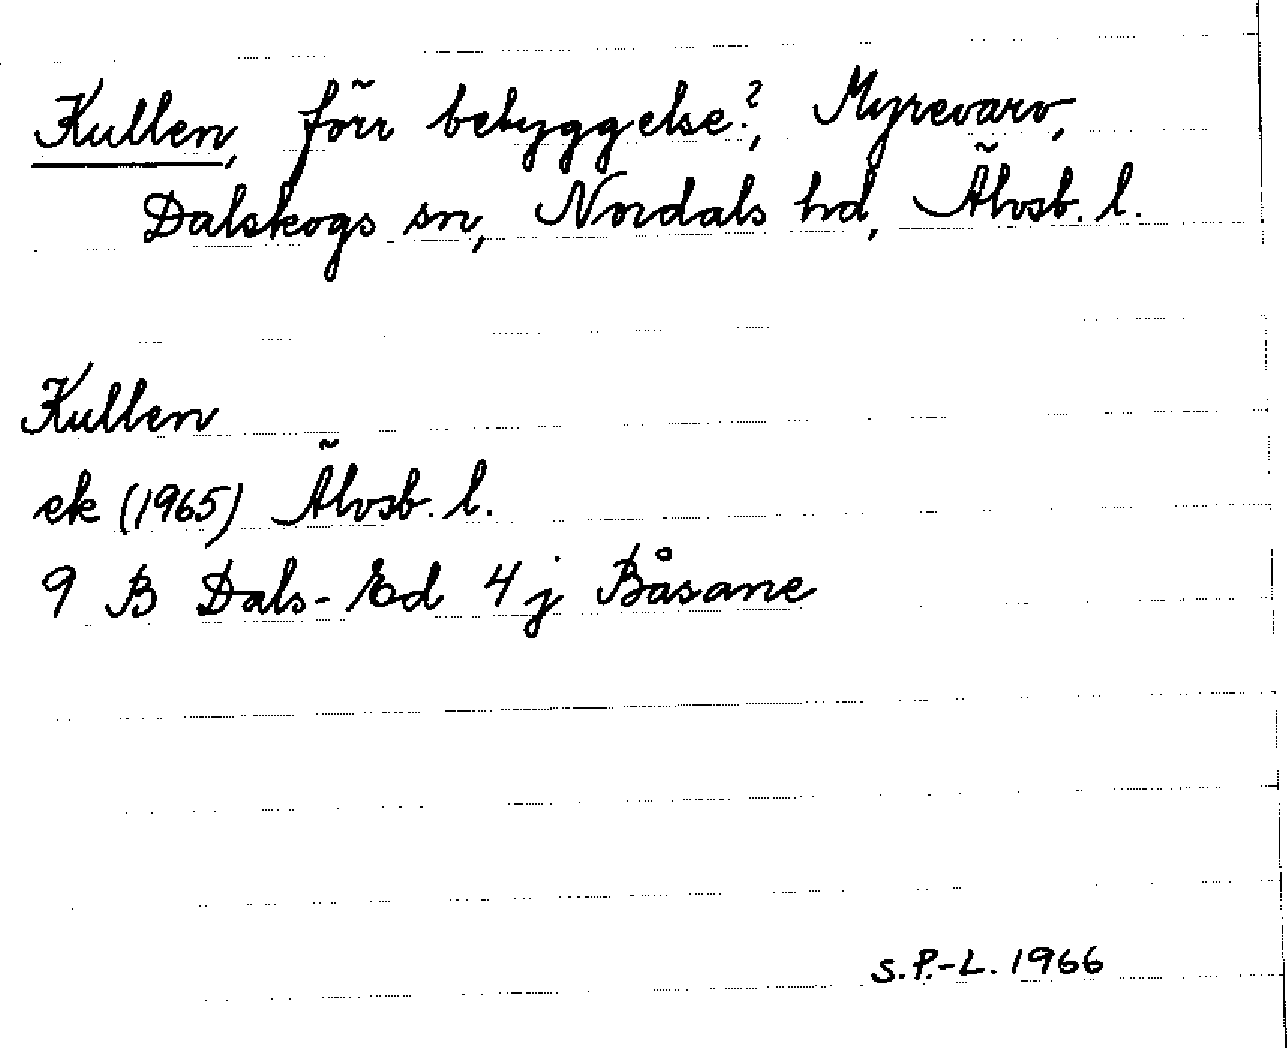 Kullen, förr bebyggelse?, Myrevarv,
Dalskogs sn, Nordals hd, Älvsb. l.
Kullen
ek (1965) Älvsb. l.
9 B Dals-Ed 4 j Båsane
S.P.-L. 1966